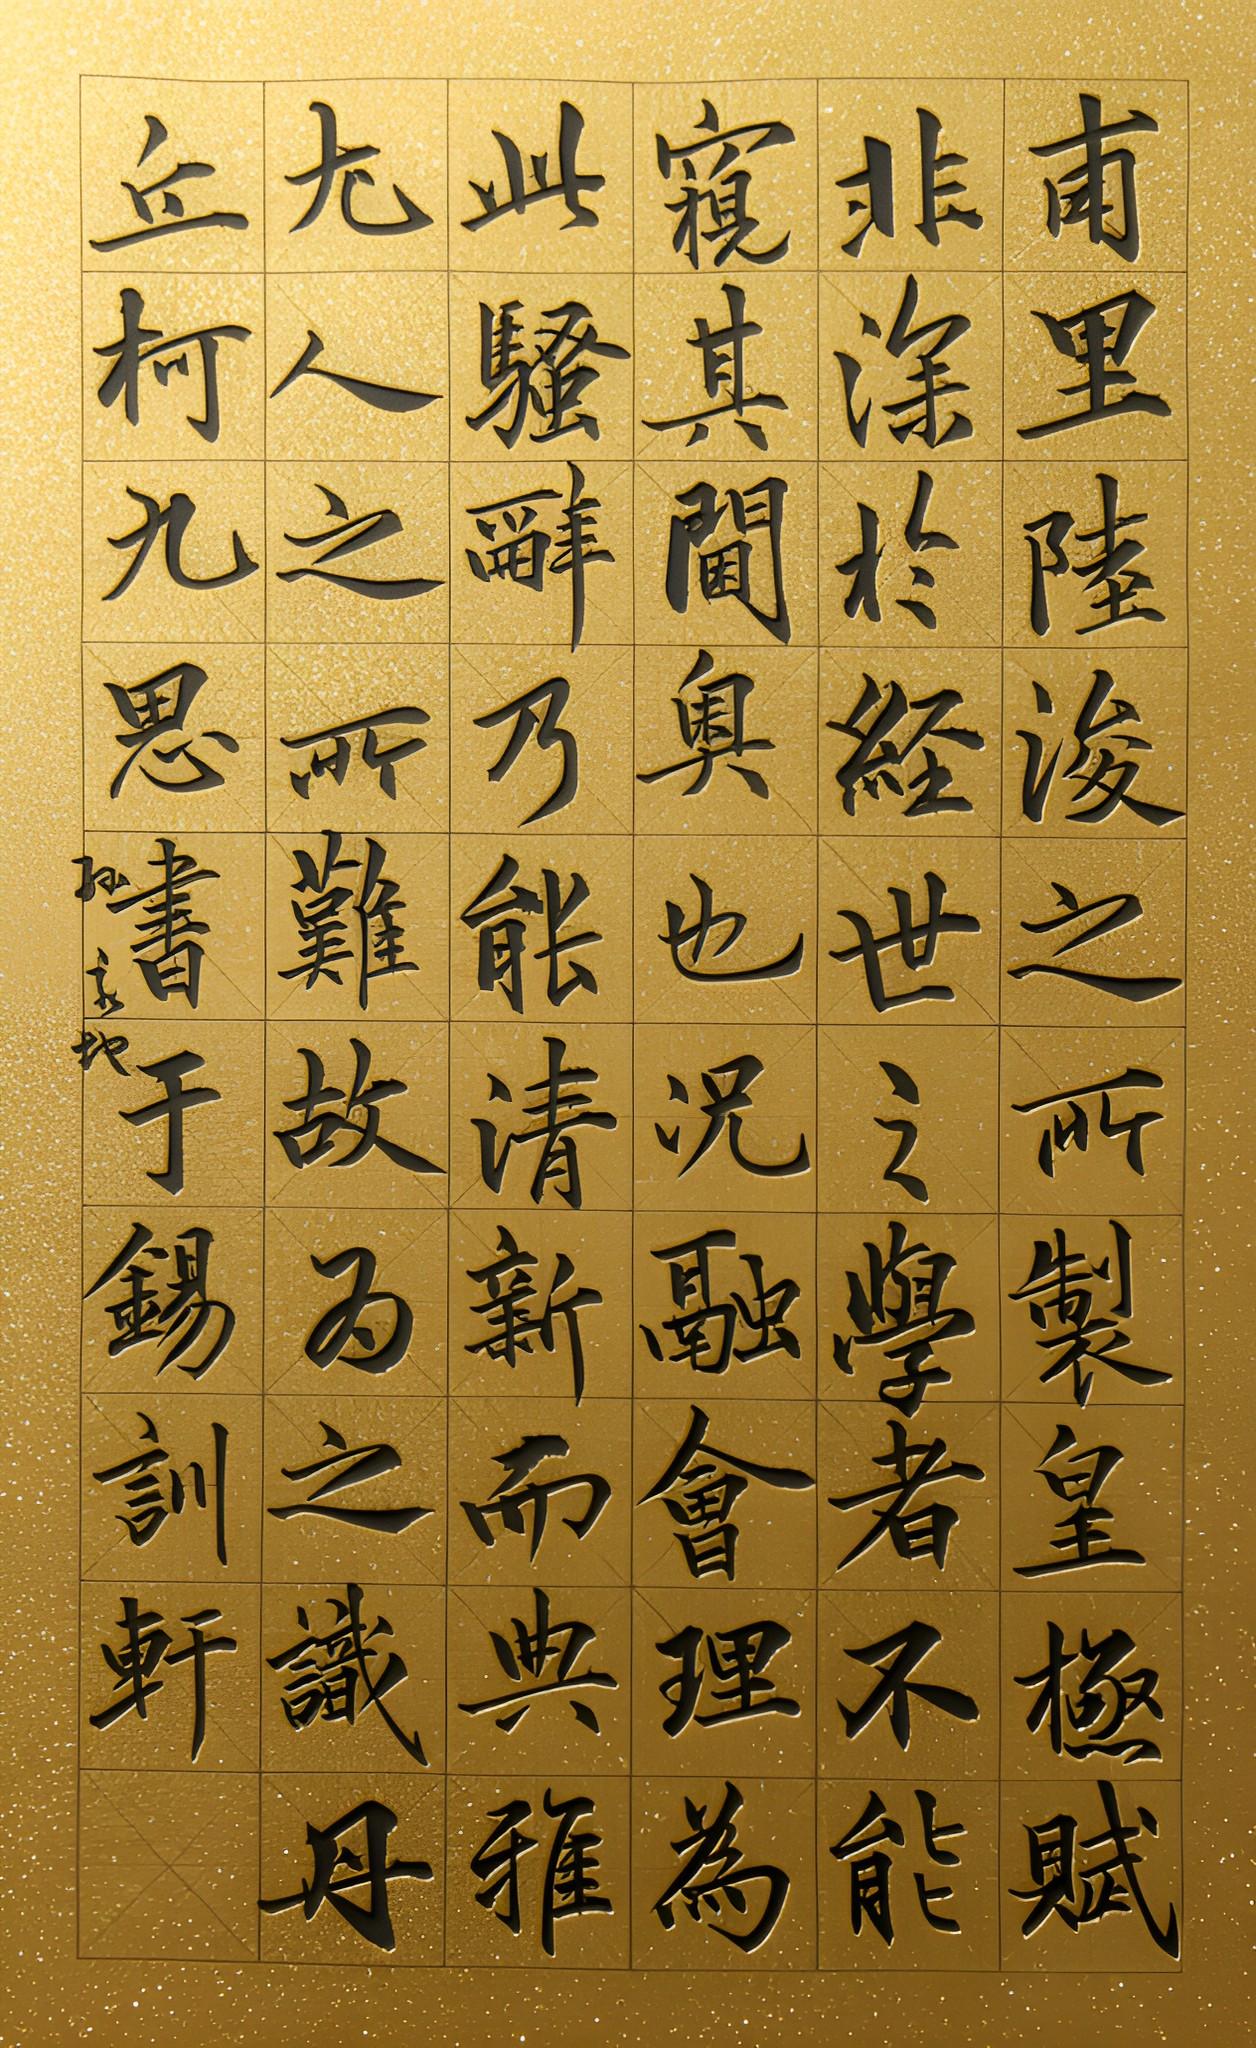 甫里陸浚之所製皇極賦
非深於経世之學者不能
窺其閫奥也况融會理為
此騷辭乃能清新而典雅
尢人之所難故為之識丹
丘柯九思書于錫訓軒